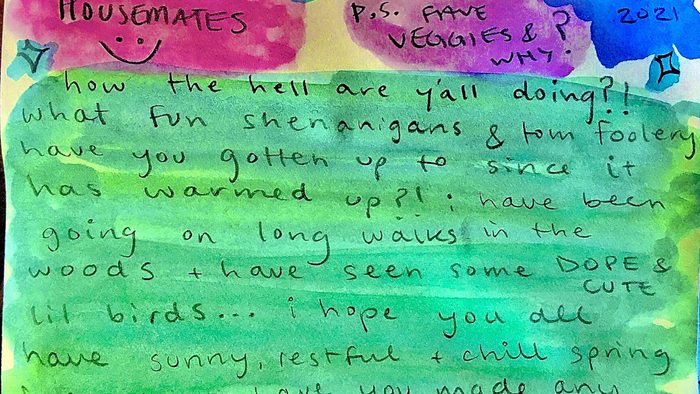 HOUSEMATES
P.S. FAVE
VEGGIES & ?
WHY.
2021
how the hell are y'all doing?!
what fun shenanigans & tom foolery
have you gotten up to since it
has warmed up?! i have been
going on long walks in the
woods + have seen some DOPE &
CUTE
lil birds... i hope you all
have sunny, restful + chill spring
have you made any